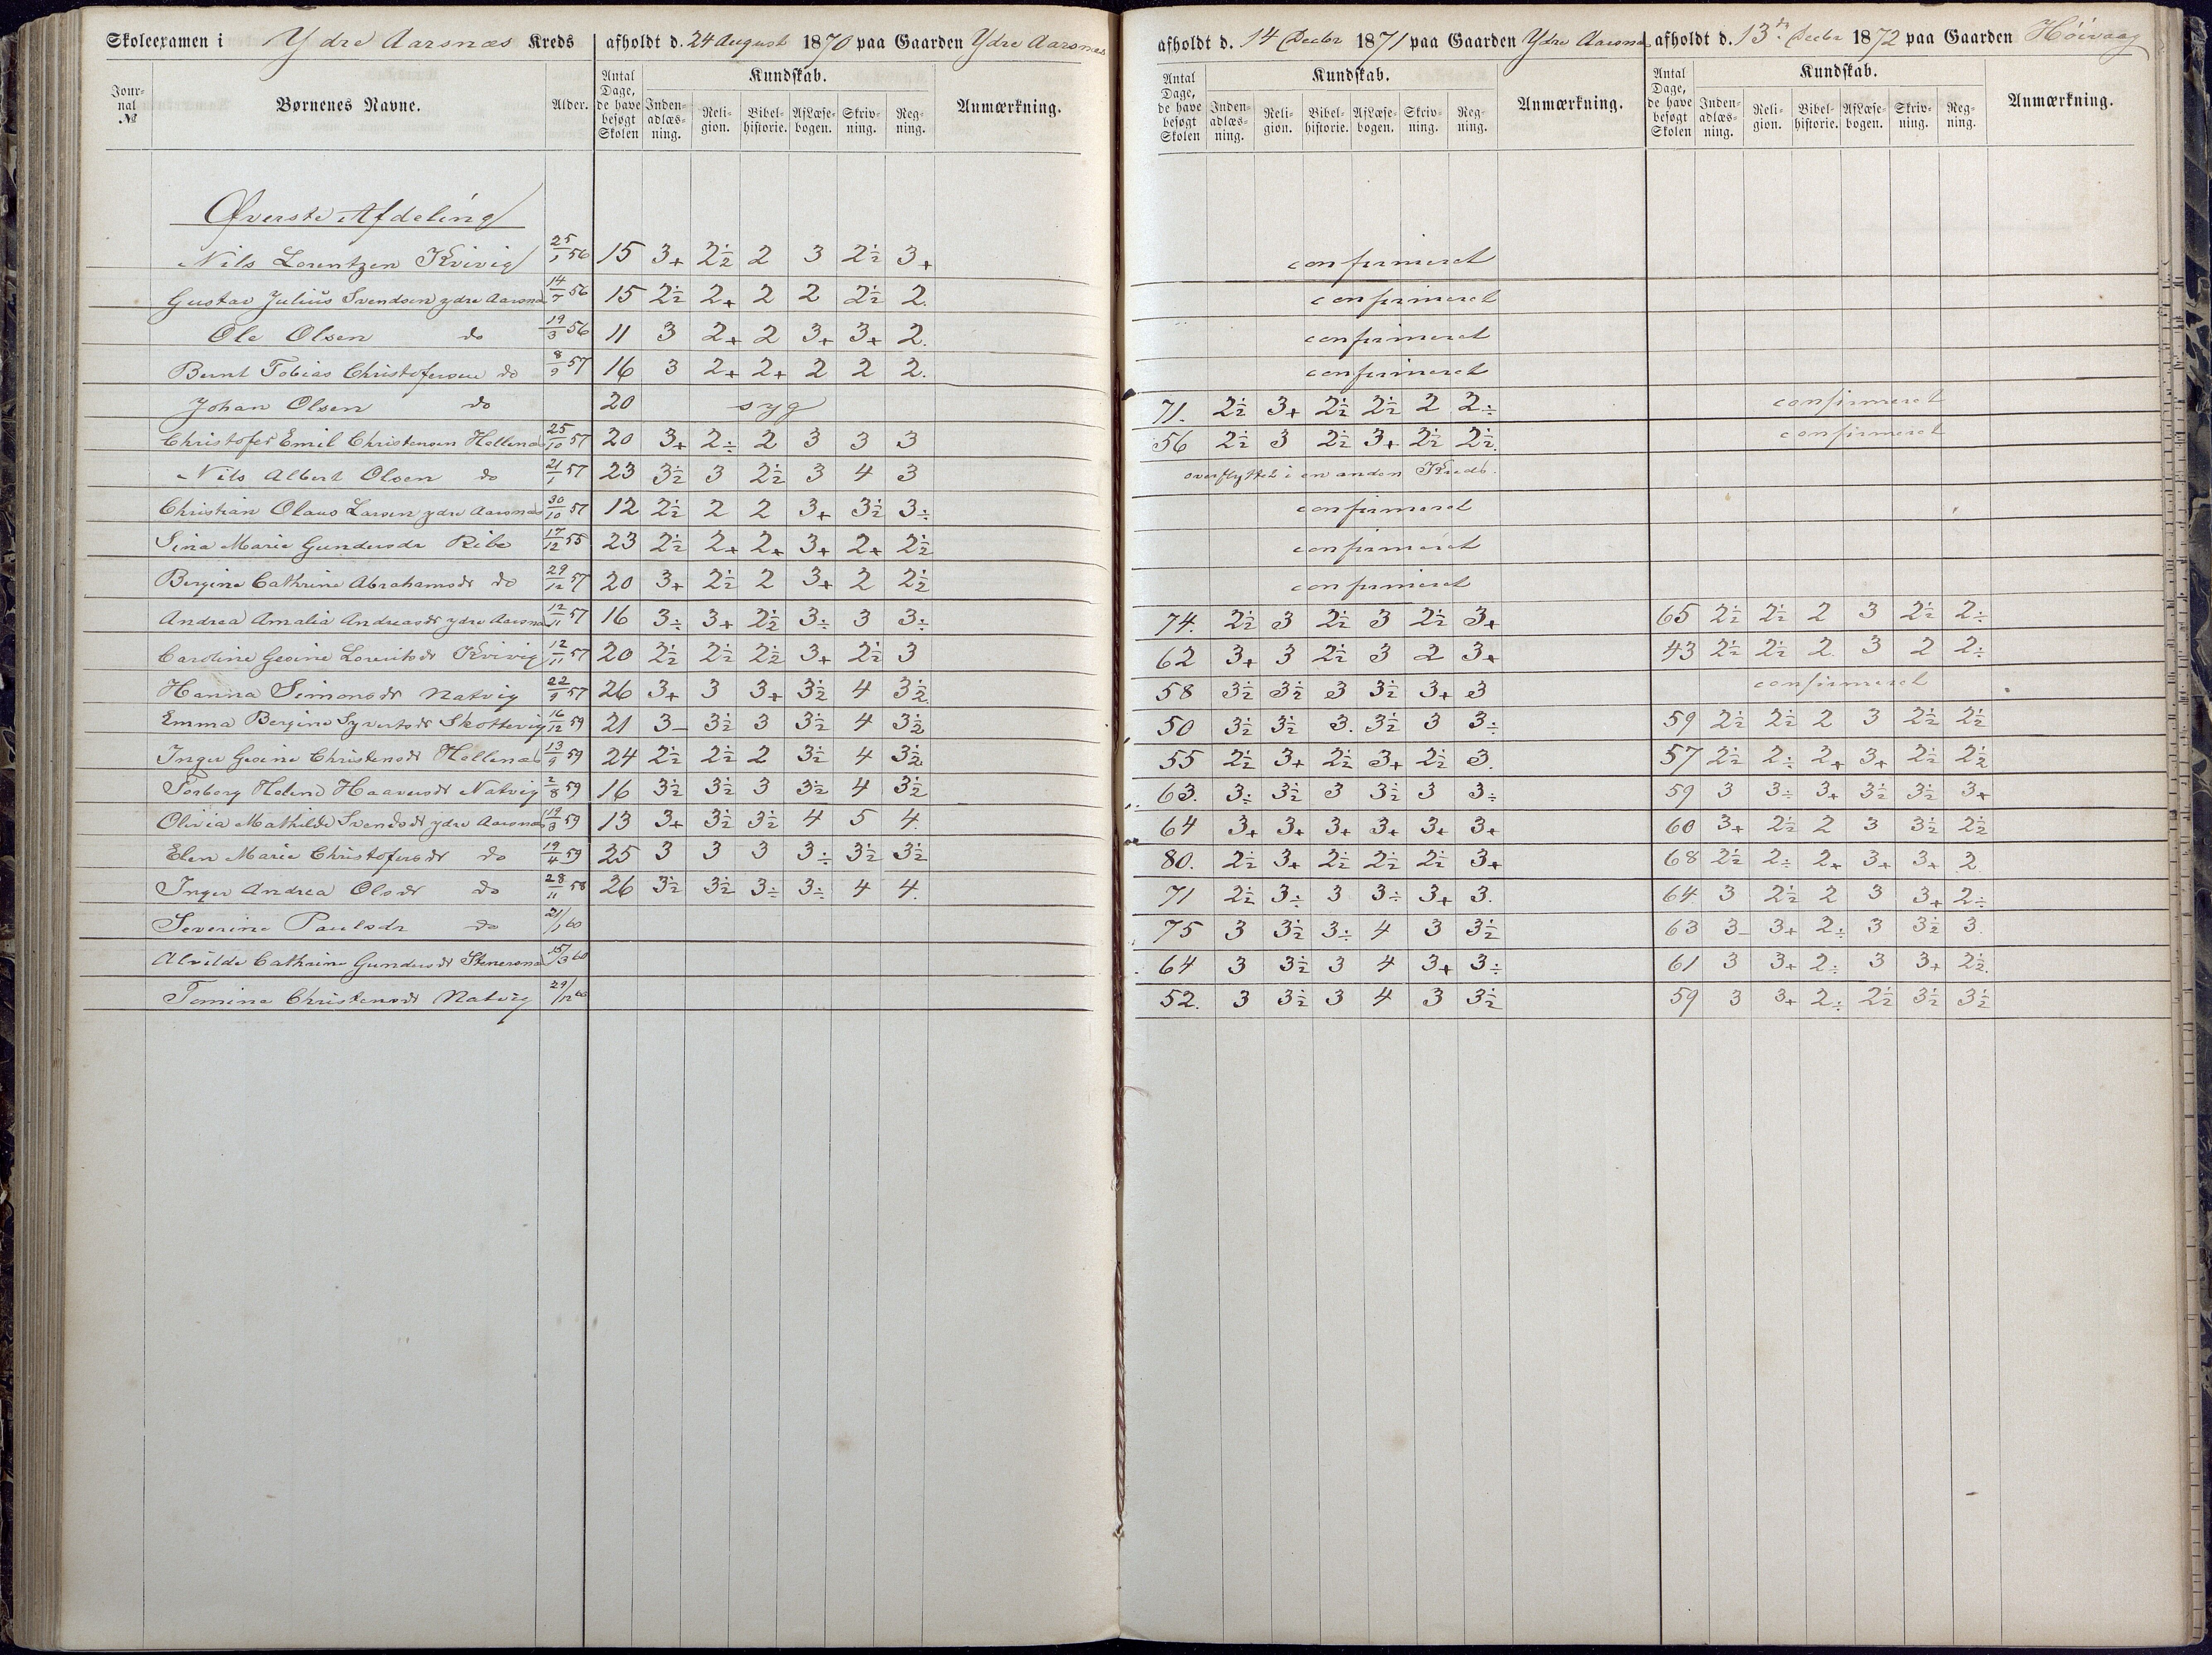 Skoleexamen i Ydre Aarsnæs Kreds afholdt d. 24 August 1870 paa Gaarden Ydre Aarsnæs
Jour-nal № Børnenes Navne. Alder. Antal Dage, de have besøgt Skolen Kundskab. Inden-adlæs-ning. Reli-gion. Bibel-historie. Af Læse-bogen. Skriv-ning. Reg-ning. Anmærkning.
Øverste Afdeling
Nils Lorentzen Kvivig 25/1 56 15 3+ 2½ 2 3 2½ 3+
Gustav Julius Svendsen ydre Aarsnæs 14/7 56 15 2½ 2+ 2 2 2½ 2.
Ole Olsen do 19/3 56 11 3 2+ 2 3+ 3+ 2.
Bernt Tobias Christofersen do 8/9 57 16 3 2+ 2+ 2 2 2.
Johan Olsen do 20 syg
Christofer Emil Christensen Hellenæs 25/10 57 20 3+ 2÷ 2 3 3 3
Nils Albert Olsen do 21/1 57 23 3½ 3 2½ 3 4 3
Christian Olaus Larsen ydre Aarsnæs 30/10 57 12 2½ 2 2 3+ 3½ 3÷
Sina Marie Gundersdr Ribe 17/12 55 23 2½ 2+ 2+ 3+ 2+ 2½
Bergine Cathrine Abrahamsdr do 29/12 57 20 3+ 2½ 2 3+ 2 2½
Andrea Amalia Andreasdr ydre Aarsnæs 12/11 57 16 3÷ 3+ 2½ 3÷ 3 3÷
Caroline Gesine Lorentsdr Kvivig 12/11 57 20 2½ 2½ 2½ 3+ 2½ 3
Hanna Simonsdr Natvig 22/9 57 26 3+ 3 3+ 3½ 4 3½
Emma Bergine Syvertsdr Skottevig 16/12 59 21 3- 3½ 3 3½ 4 3½
Inger Gesine Christensdr Hellenæs 13/9 59 24 2½ 2½ 2 3½ 4 3½
Torborg Helene Haaversdr Natvig 2/8 59 16 3½ 3½ 3 3½ 4 3½
Olivia Mathilde Svendsdr ydre Aarsnæs 19/3 59 13 3+ 3½ 3½ 4 5 4.
Elen Marie Christofersdr do 19/4 59 25 3 3 3 3÷ 3½ 3½
Inger Andrea Olsdr do 28/11 58 26 3½ 3½ 3÷ 3÷ 4 4.
Severine Paulsdr do 21/1 60
Alvilde Cathrine Gundersdr Stenersnæs 15/3 60
Tomine Christensdr Natvig 29/12 60
afholdt d. 14 Decbr 1871 paa Gaarden Ydre Aarsnæs afholdt d. 13de Decbr 1872 paa Gaarden Høivaag
Antal Dage, de have besøgt Skolen Kundskab. Inden-adlæs-ning. Reli-gion. Bibel-historie. Af Læse-bogen. Skriv-ning. Reg-ning. Anmærkning. Antal Dage, de have besøgt Skolen Kundskab. Inden-adlæs-ning. Reli-gion. Bibel-historie. Af Læse-bogen. Skriv-ning. Reg-ning. Anmærkning.
confirmeret
confirmeret
confirmeret
confirmeret
71. 2½ 3+ 2½ 2½ 2 2÷ confirmeret
56 2½ 3 2½ 3+ 2½ 2½. confirmeret
overflyttet i en anden Kreds.
confirmeret
confirmeret
confirmeret
74. 2½ 3 2½ 3 2½ 3+ 65 2½ 2½ 2 3 2½ 2÷
62 3+ 3 2½ 3 2 3+ 43 2½ 2½ 2 3 2 2÷
58 3½ 3½ 3 3½ 3+ 3 confirmeret
50 3½ 3½ 3. 3½ 3 3÷ 59 2½ 2½ 2 3 2½ 2½
55 2½ 3+ 2½ 3+ 2½ 3. 57 2½ 2÷ 2+ 3+ 2½ 2½
63. 3÷ 3½ 3 3½ 3 3÷ 59 3 3÷ 3+ 3½ 3½ 3+
64 3+ 3+ 3+ 3+ 3+ 3+ 60 3+ 2½ 2 3 3½ 2½
80. 2½ 3+ 2½ 2½ 2½ 3+ 68 2½ 2÷ 2+ 3+ 3+ 2
71 2½ 3÷ 3 3÷ 3+ 3. 64 3 2½ 2 3 3+ 2÷
75 3 3½ 3÷ 4 3 3½ 63 3- 3+ 2÷ 3 3½ 3.
64 3 3½ 3 4 3+ 3÷ 61 3 3+ 2÷ 3 3+ 2½.
52. 3 3½ 3 4 3 3½ 59 3 3+ 2÷ 2½ 3½ 3½